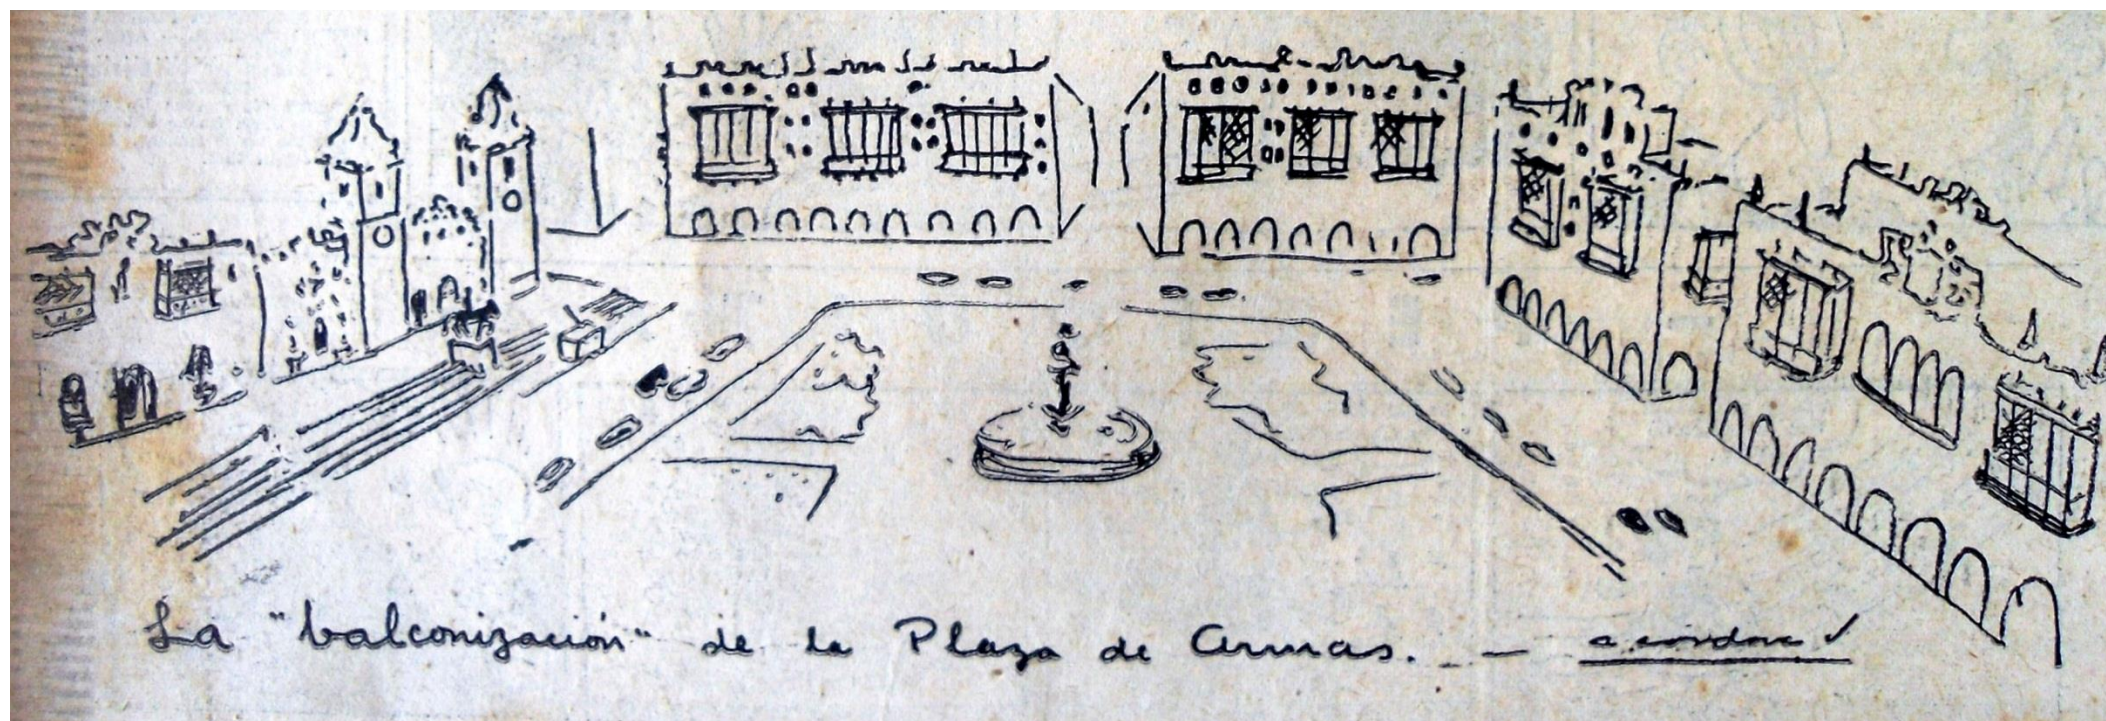 La "balconización" de la Plaza de Armas. — a. córdova v